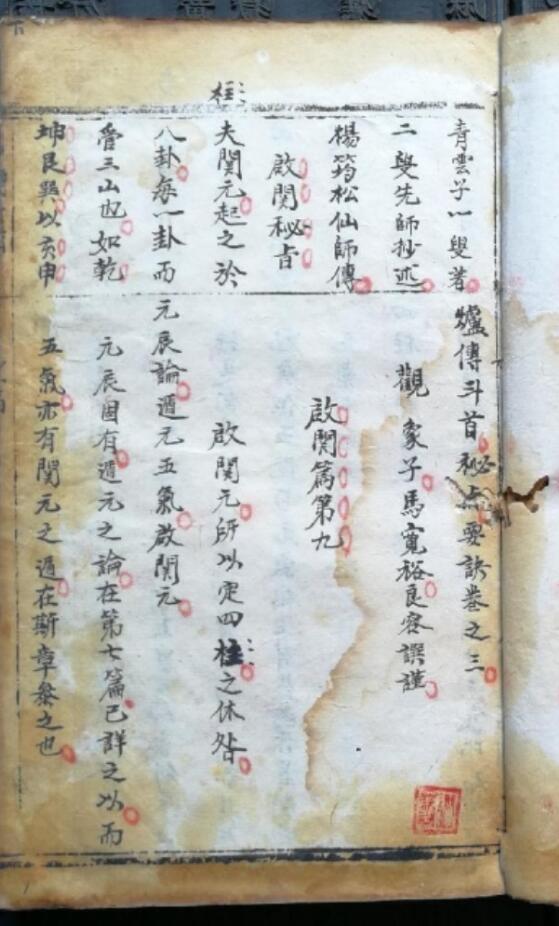 柱
青雲子一叟著
二叟先師抄述
楊筠松仙師傳
啟関秘旨
夫関元起之於
八卦每一卦而
管三山也如乾
坤艮巽以亥申
爐傳斗首秘旨要訣卷之三
觀象子馬寬裕良容譔謹
啟関篇第九
啟関元所以定四柱之休咎
元辰論遁元五氣啟関元
元辰固有遁元之論在第七篇已詳之以而
五氣亦有関元之遁在斯章發之也